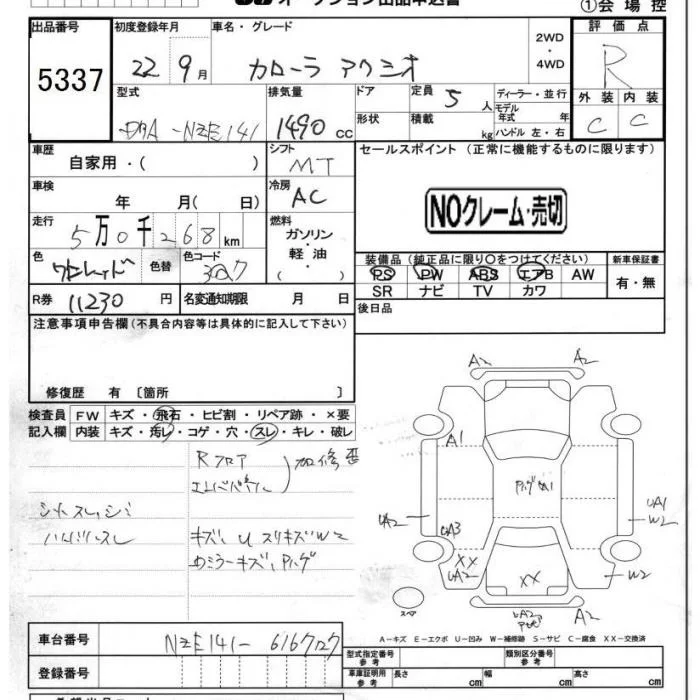 ①会場控
出品番号 初度登録年月 車名・グレード 2WD ・ 4WD 評価点
5337 22 9月 カローラ アクシオ R
型式 排気量 ドア 定員 5 人 ディーラー・並行 外装 内装
DBA-NZE141 1490 cc 形状 積載 kg モデル年式 年 ハンドル 左・右 C C
車歴 シフト セールスポイント (正常に機能するものに限ります)
自家用・( ) MT
車検 冷房
年 月( 日) AC
NOクレーム・売切
走行 燃料
5万0千268km ガソリン・軽油・
色 色替 色コード 装備品 (純正品に限り○をつけてください) 新車保証書
PS PW ABS エアB AW 有・無
SR ナビ TV カワ
R券 11230 円 名変通知期限 月 日
後日品
注意事項申告欄 (不具合内容等は具体的に記入して下さい)
修復歴 有 〔箇所 〕
検査員 FW キズ・飛石・ヒビ割・リペア跡・×要
記入欄 内装 キズ・汚レ・コゲ・穴・スレ・キレ・破レ
Rフロア
シートスレ、シミ
ハンドルスレ キズ、U スリキズW2
A2 A2
A1
UA2 UA3 UA1
W2
XX
UA2 XX W2
スペア UA2 A2
A-キズ E-エクボ U-凹み W-補修跡 S-サビ C-腐食 XX-交換済
車台番号 NZE141-6167127
型式指定番号 参考 類別区分番号 参考
登録番号 車庫証明用 参考 長さ cm 幅 cm 高さ cm